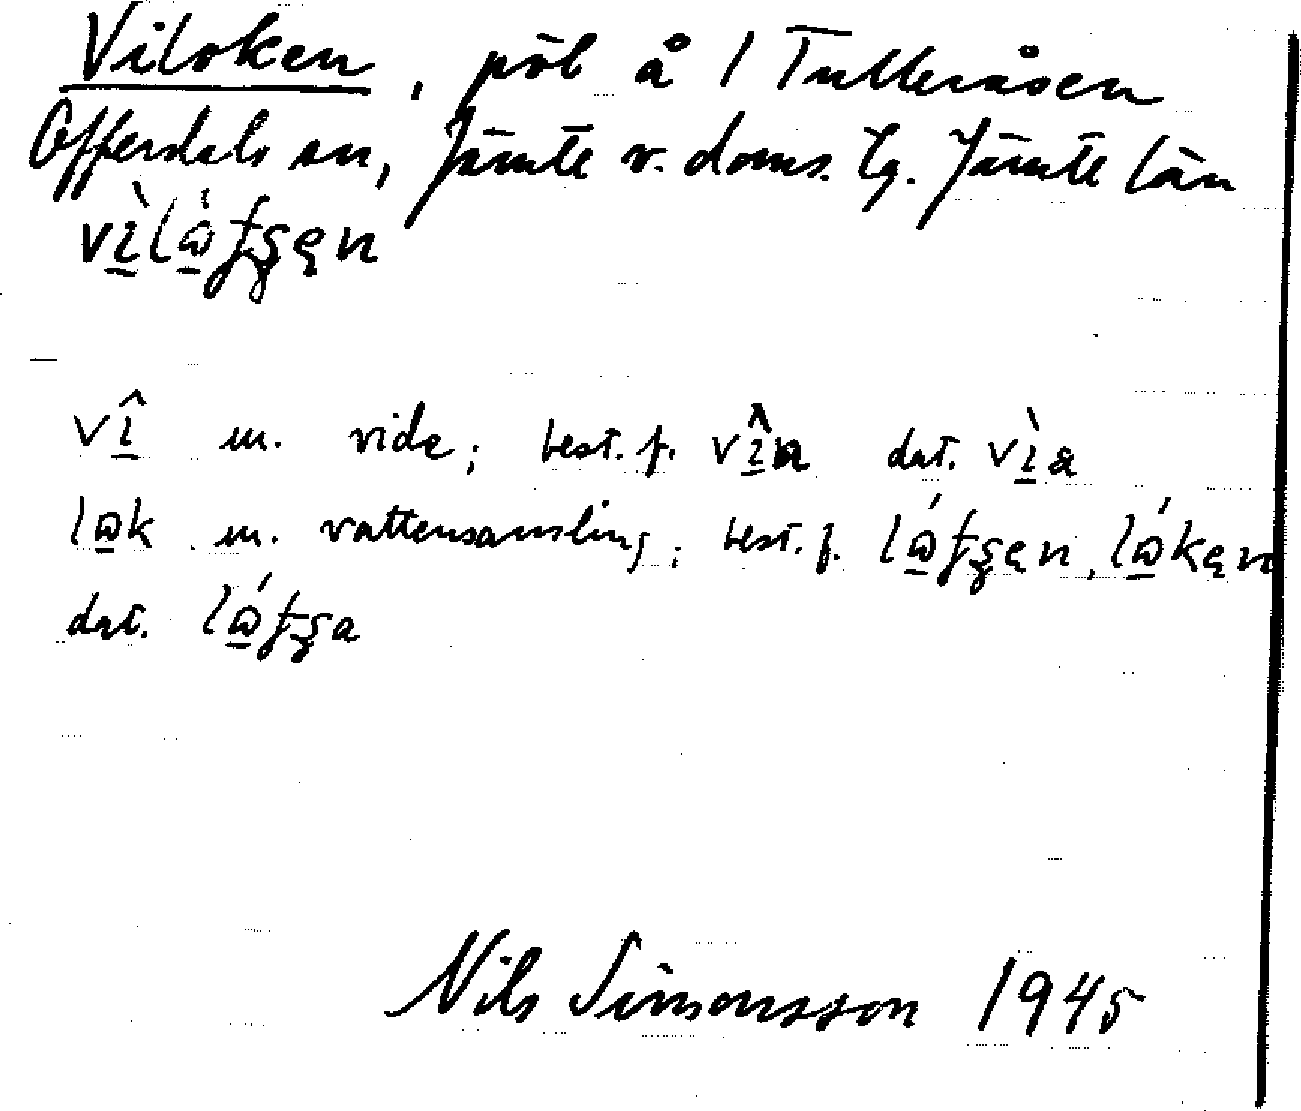 Viloken, pöl å 1 Tulleråsen
Offerdals sn, Jämte v. doms. tg. Jämte län
vìlɷ́ʈʂen

vî m. vide; best. f. vîn dat. vìa
lɷk m. vattensamling; best. f. lɷ́ʈʂen, lɷ́ken
dat. lɷ́ʈʂa
Nils Simonsson 1945